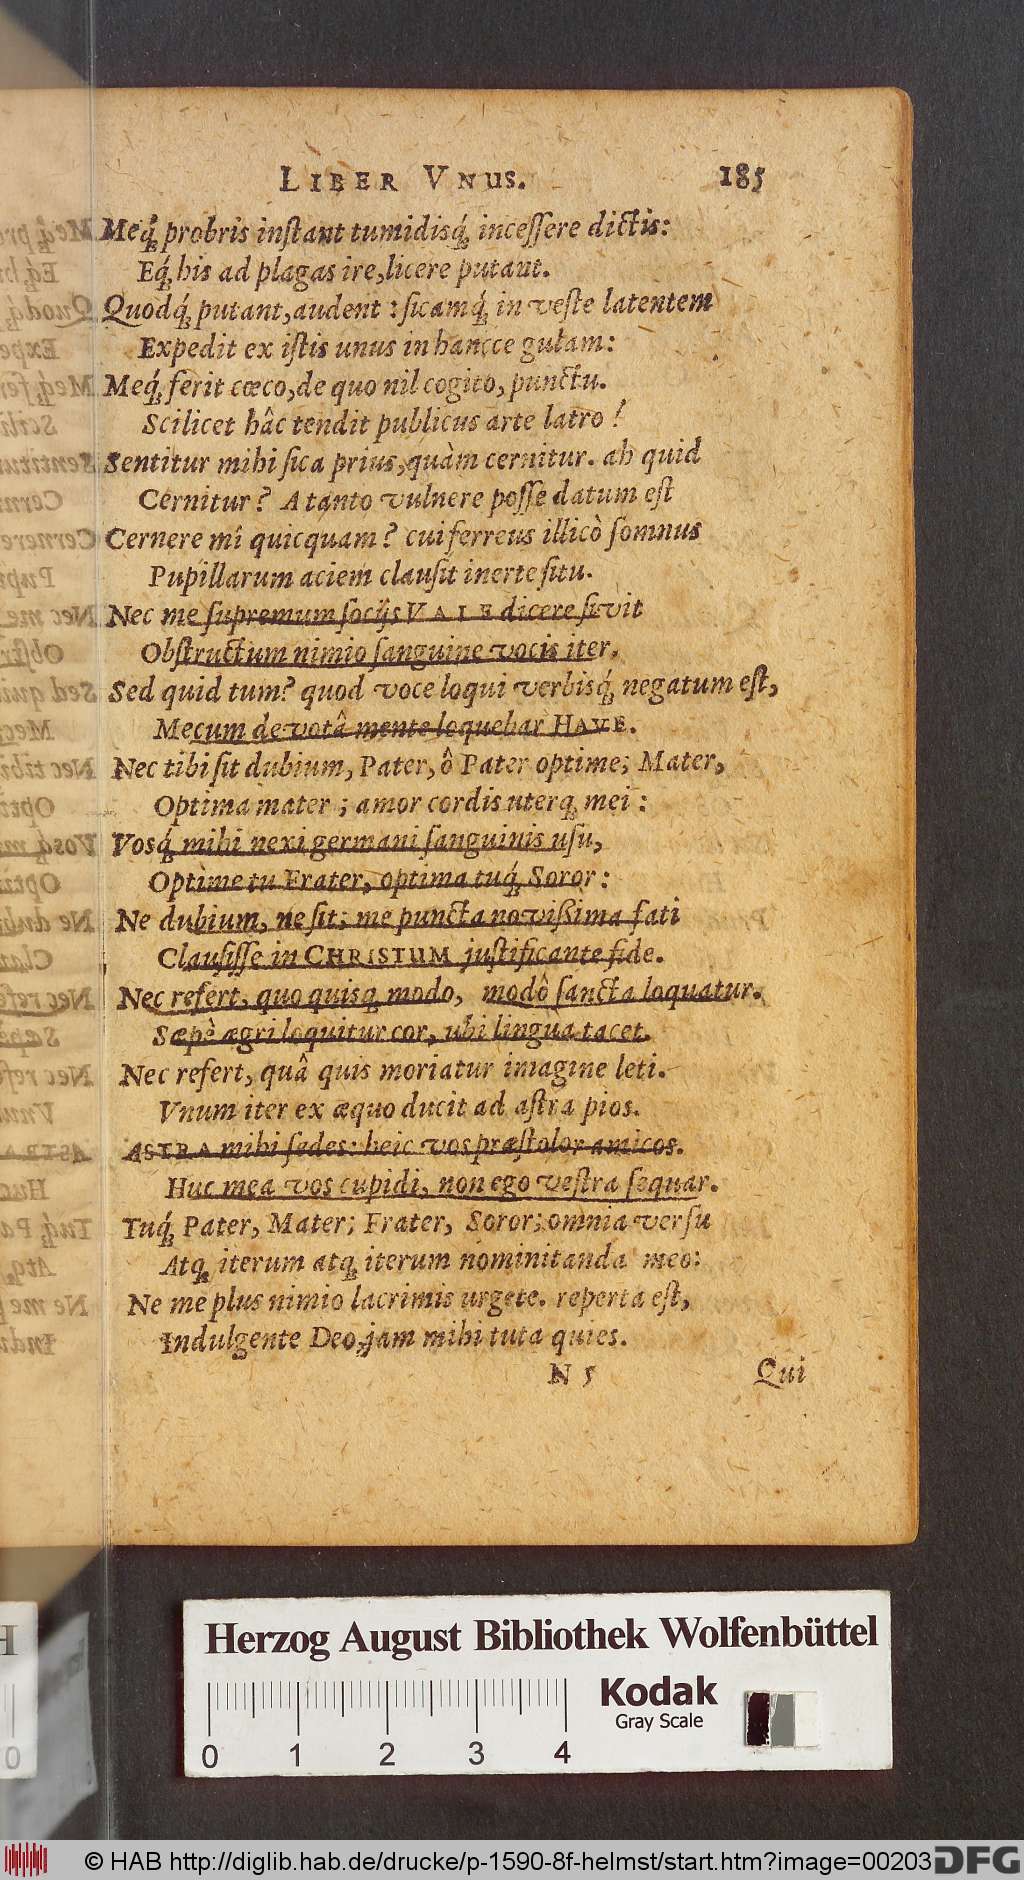 LIBER VNUS. 185
Meq́; probris inſtant tumidisq́; inceſſere dictis:
Eq́; his ad plagas ire, licere putant.
Quodq́; putant, audent: ſicamq́; in veſte latentem
Expedit ex iſtis unus in hancce gulam:
Meq́; ferit cœco, de quo nil cogito, punctu.
Scilicet hâc tendit publicus arte latro!
Sentitur mihi ſica prius, quàm cernitur. ah quid
Cernitur? A tanto vulnere poſſe datum eſt
Cernere mí quicquam? cui ferreus illicò ſomnus
Pupillarum aciem clauſit inerte ſitu.
Nec me ſupremum ſocijs VALE dicere ſivit
Obſtructum nimio ſanguine vocis iter.
Sed quid tum? quod voce loqui verbisq́; negatum eſt,
Mecum devotâ mente loquebar HAVE.
Nec tibi ſit dubium, Pater, ô Pater optime; Mater,
Optima mater; amor cordis uterq; mei:
Vosq́; mihi nexi germani ſanguinis uſu,
Optime tu Frater, optima tuq́; Soror:
Ne dubium, ne ſit; me puncta noviſſima fati
Clauſiſſe in CHRISTUM juſtificante fide.
Nec refert, quo quisq; modo, modô ſancta loquatur.
Sæpè ægri loquitur cor, ubi lingua tacet.
Nec refert, quâ quis moriatur imagine leti.
Vnum iter ex æquo ducit ad aſtra pios.
ASTRA mihi ſedes: heic vos præſtolor amicos.
Huc mea vos cupidi, non ego veſtra ſequar.
Tuq́; Pater, Mater; Frater, Soror; omnia verſu
Atq; iterum atq; iterum nominitanda meo:
Ne me plus nimio lacrimis urgete. reperta eſt,
Indulgente Deo, jam mihi tuta quies.
N 5 Qui
Herzog August Bibliothek Wolfenbüttel
Kodak
Gray Scale
0 1 2 3 4
0
© HAB http://diglib.hab.de/drucke/p-1590-8f-helmst/start.htm?image=00203
DFG